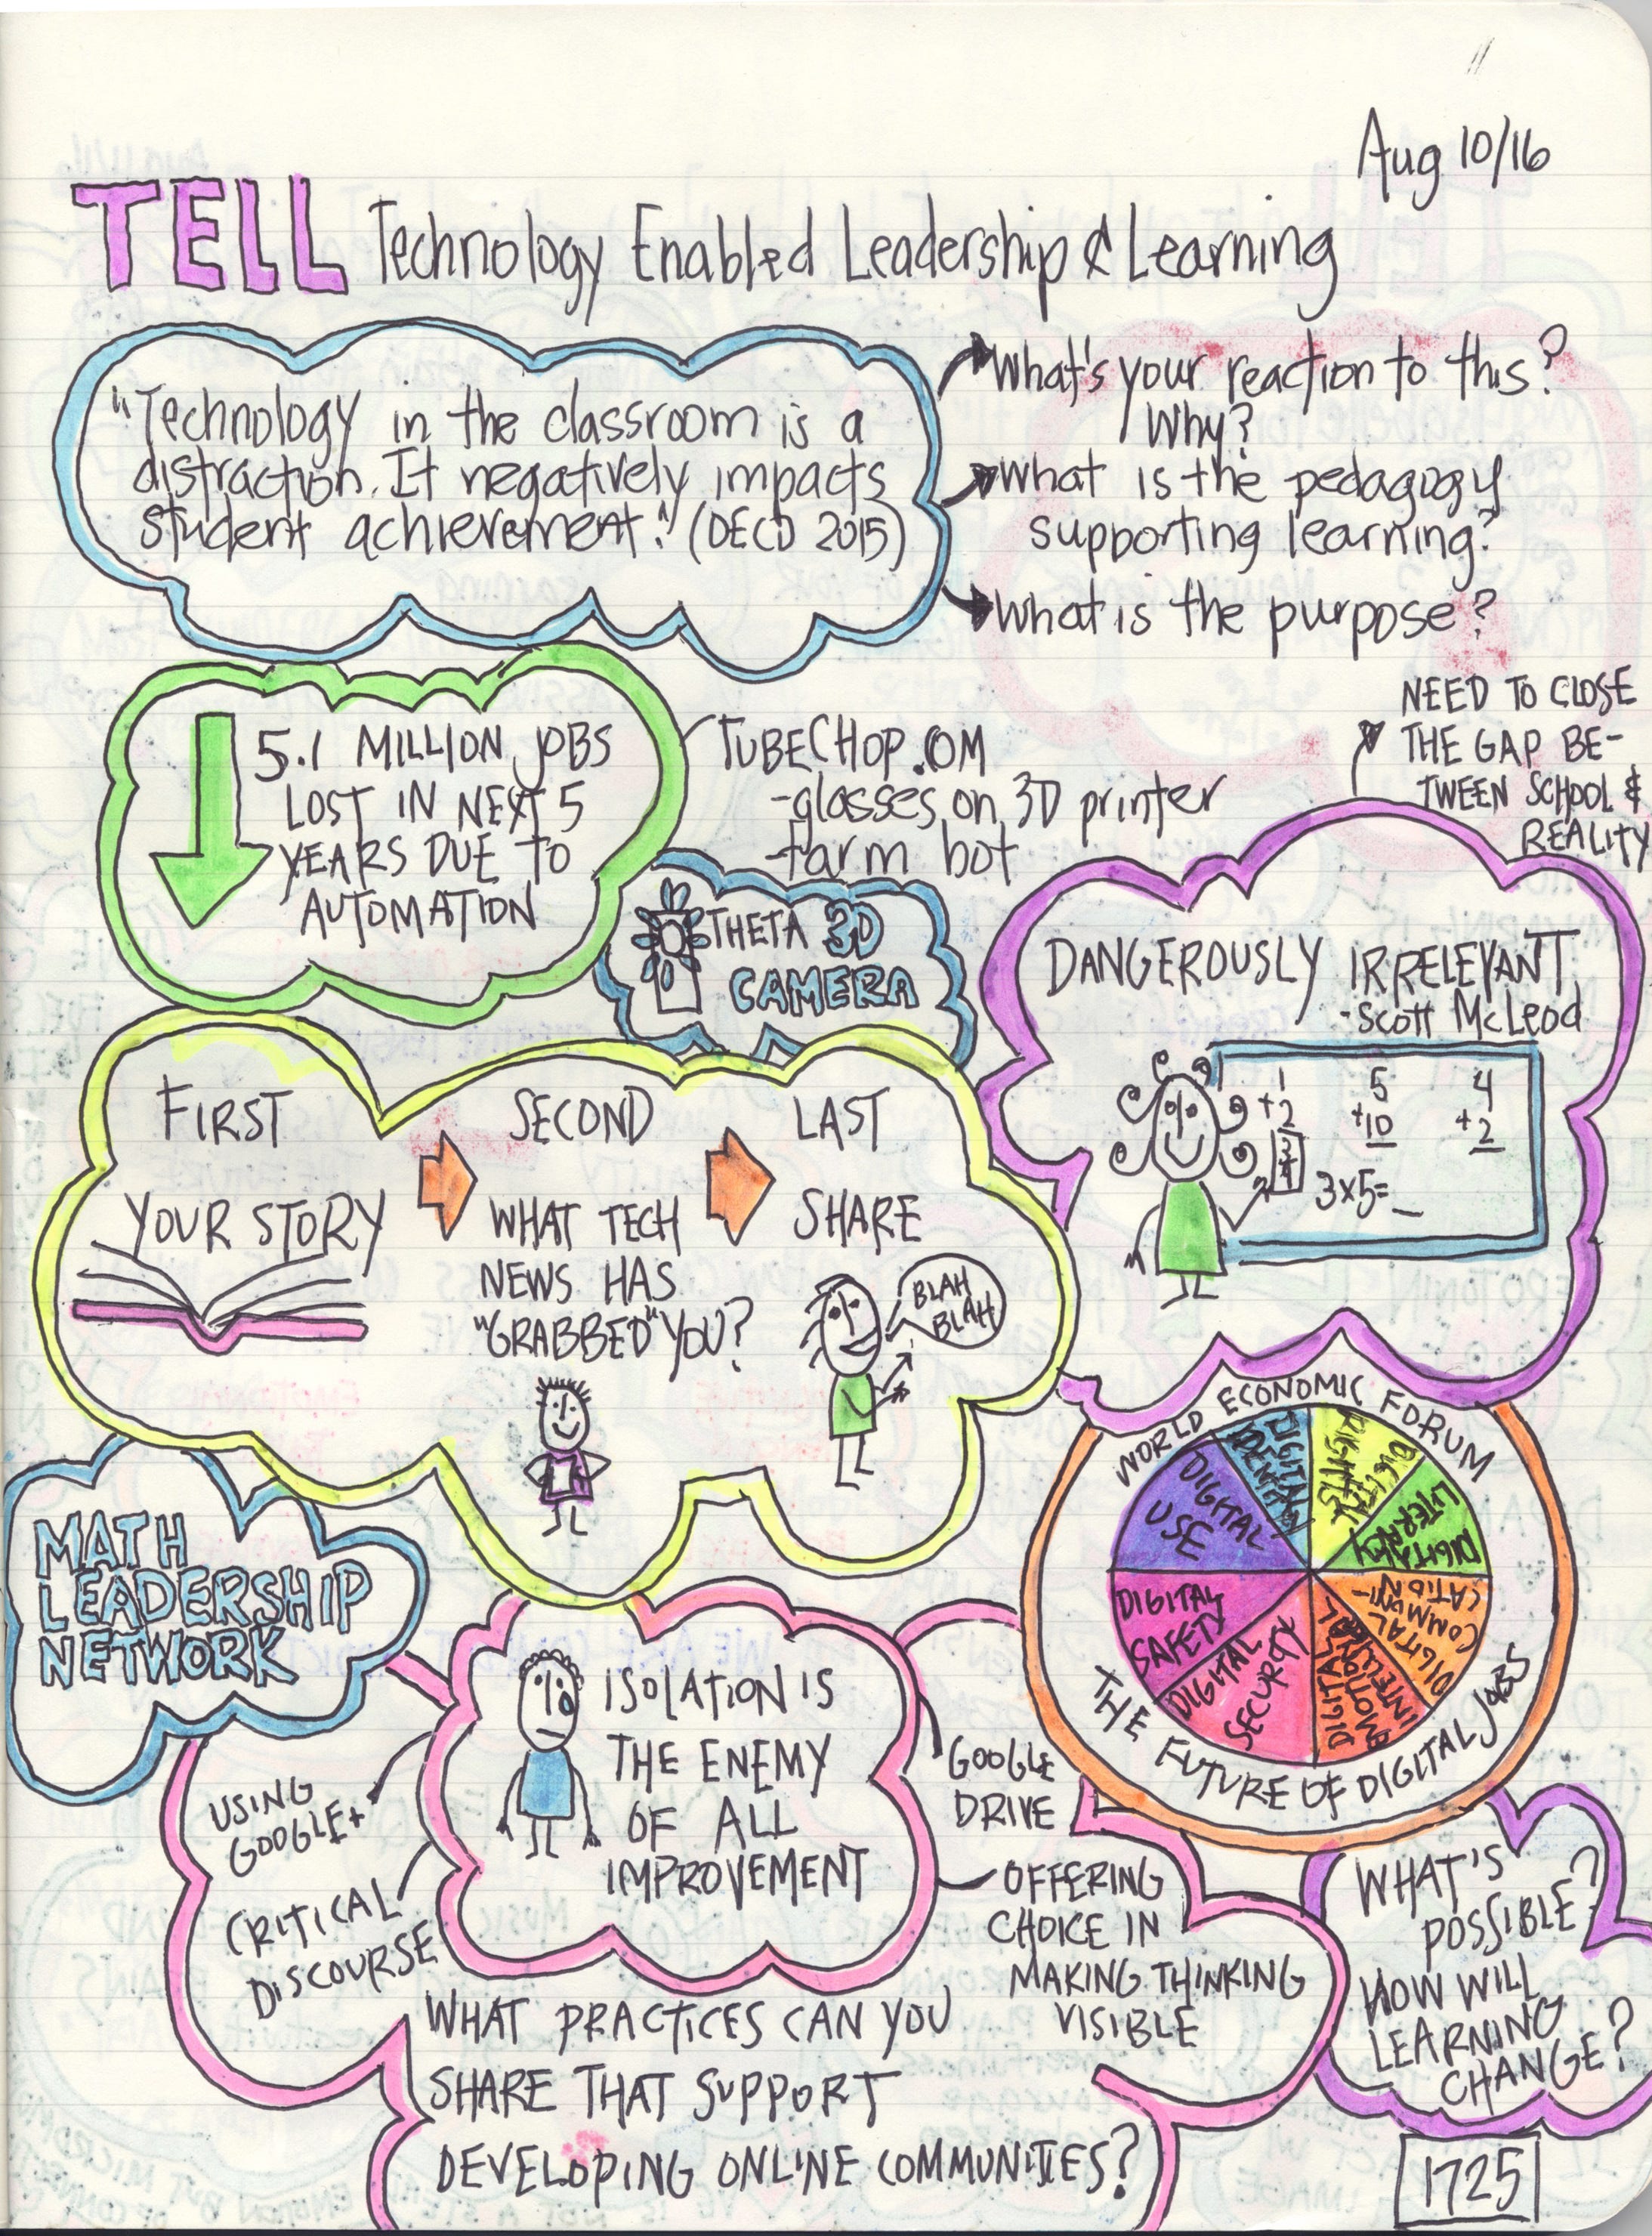 Aug 10/16
TELL Technology Enabled Leadership & Learning
"Technology in the classroom is a
distraction. It negatively impacts
student achievement." (OECD 2015)
What's your reaction to this?
Why?
What is the pedagogy
supporting learning?
What is the purpose?
5.1 MILLION JOBS
LOST IN NEXT 5
YEARS DUE TO
AUTOMATION
TUBECHOP.OM
-glasses on 3D printer
-farm bot
THETA 3D
CAMERA
NEED TO CLOSE
THE GAP BE-
TWEEN SCHOOL &
REALITY
DANGEROUSLY IRRELEVANT
-SCOTT McLeod
1 5 4
+2 +10 +2
3x5=_
FIRST
YOUR STORY
SECOND
WHAT TECH
NEWS HAS
"GRABBED" YOU?
LAST
SHARE
BLAH
BLAH
WORLD ECONOMIC FORUM
DIGITAL
IDENTITY
DIGITAL
RIGHTS
DIGITAL
LITERACY
DIGITAL
COMMUNI-
CATION
DIGITAL
EMOTIONAL
INTELL
DIGITAL
SECURITY
DIGITAL
SAFETY
DIGITAL
USE
THE FUTURE OF DIGITAL JOBS
MATH
LEADERSHIP
NETWORK
ISOLATION IS
THE ENEMY
OF ALL
IMPROVEMENT
USING
GOOGLE+
CRITICAL
DISCOURSE
GOOGLE
DRIVE
OFFERING
CHOICE IN
MAKING THINKING
VISIBLE
WHAT PRACTICES CAN YOU
SHARE THAT SUPPORT
DEVELOPING ONLINE COMMUNITIES?
WHAT'S
POSSIBLE?
HOW WILL
LEARNING
CHANGE?
1725